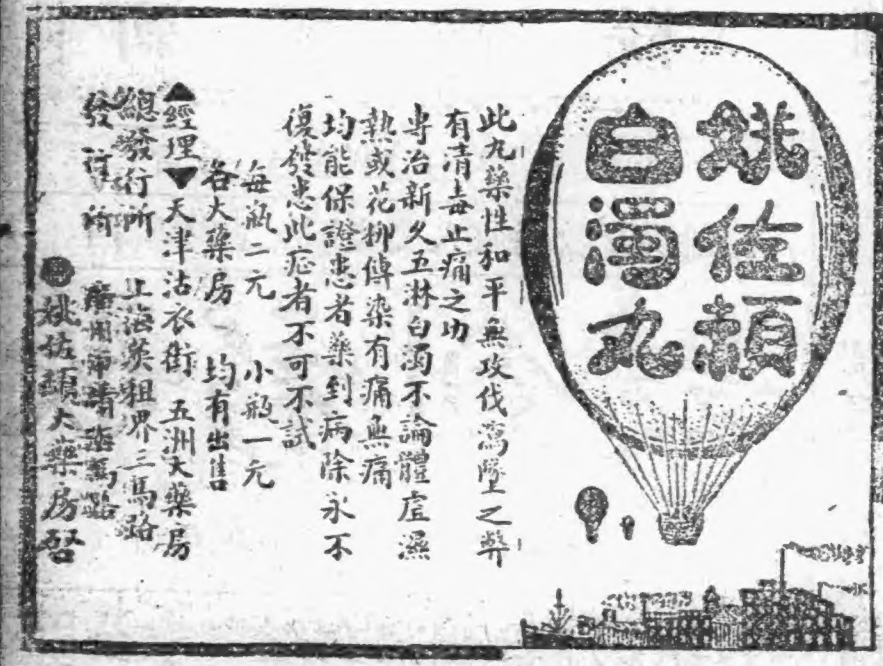 姚佐頓
白濁丸
此丸藥性和平無攻伐瀉墜之弊
有清毒止痛之功
專治新久五淋白濁不論體虛濕
熱或花柳傳染有痛無痛
均能保證患者藥到病除永不
復發患此症者不可不試
每瓶二元 小瓶一元
各大藥房 均有出售
▲經理▼天津沽衣街 五洲大藥房
總發行所 上海英租界三馬路
發行所 廣州市 馬路
姚佐頓大藥房啓